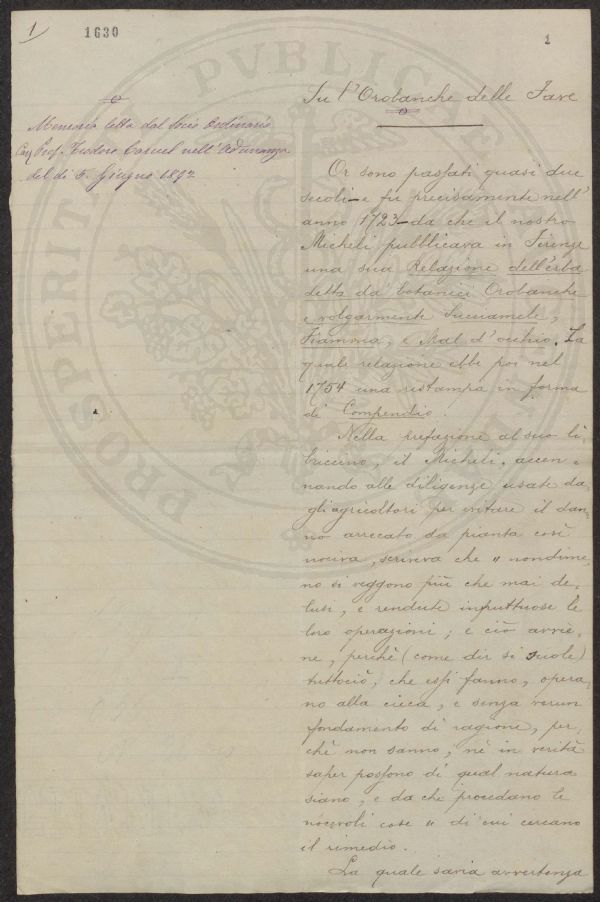 1
1630
1
Memoria letta dal Socio Ordinario
Cav. Prof. Teodoro Caruel nell'Adunanza
del dì 5. Giugno 1892
Su l'Orobanche delle Fave
Or sono passati quasi due
secoli – e fu precisamente nell'
anno 1723 – da che il nostro
Micheli pubblicava in Firenze
una sua Relazione dell'erba
detta da' botanici Orobanche
e volgarmente Succiamele,
Fiamma, e Mal d'occhio. La
quale relazione ebbe poi nel
1754 una ristampa in forma
di Compendio.
Nella prefazione al suo li=
briccino, il Micheli, accen=
nando alle diligenze usate da
gli agricoltori per evitare il dan=
no arrecato da pianta così
nociva, scriveva che „ nondime=
no si veggono più che mai de=
lusi, e rendute infruttuose le
loro operazioni; e ciò avvie=
ne, perchè (come dir si suole)
tuttociò, che essi fanno, opera=
no alla cieca, e senza verun
fondamento di ragione, per=
chè non sanno, nè in verità
saper possono di qual natura
siano, e da che procedano le
nocevoli cose „ di cui cercano
il rimedio.
La quale savia avvertenza
PROSPERITATI PVBLICAE